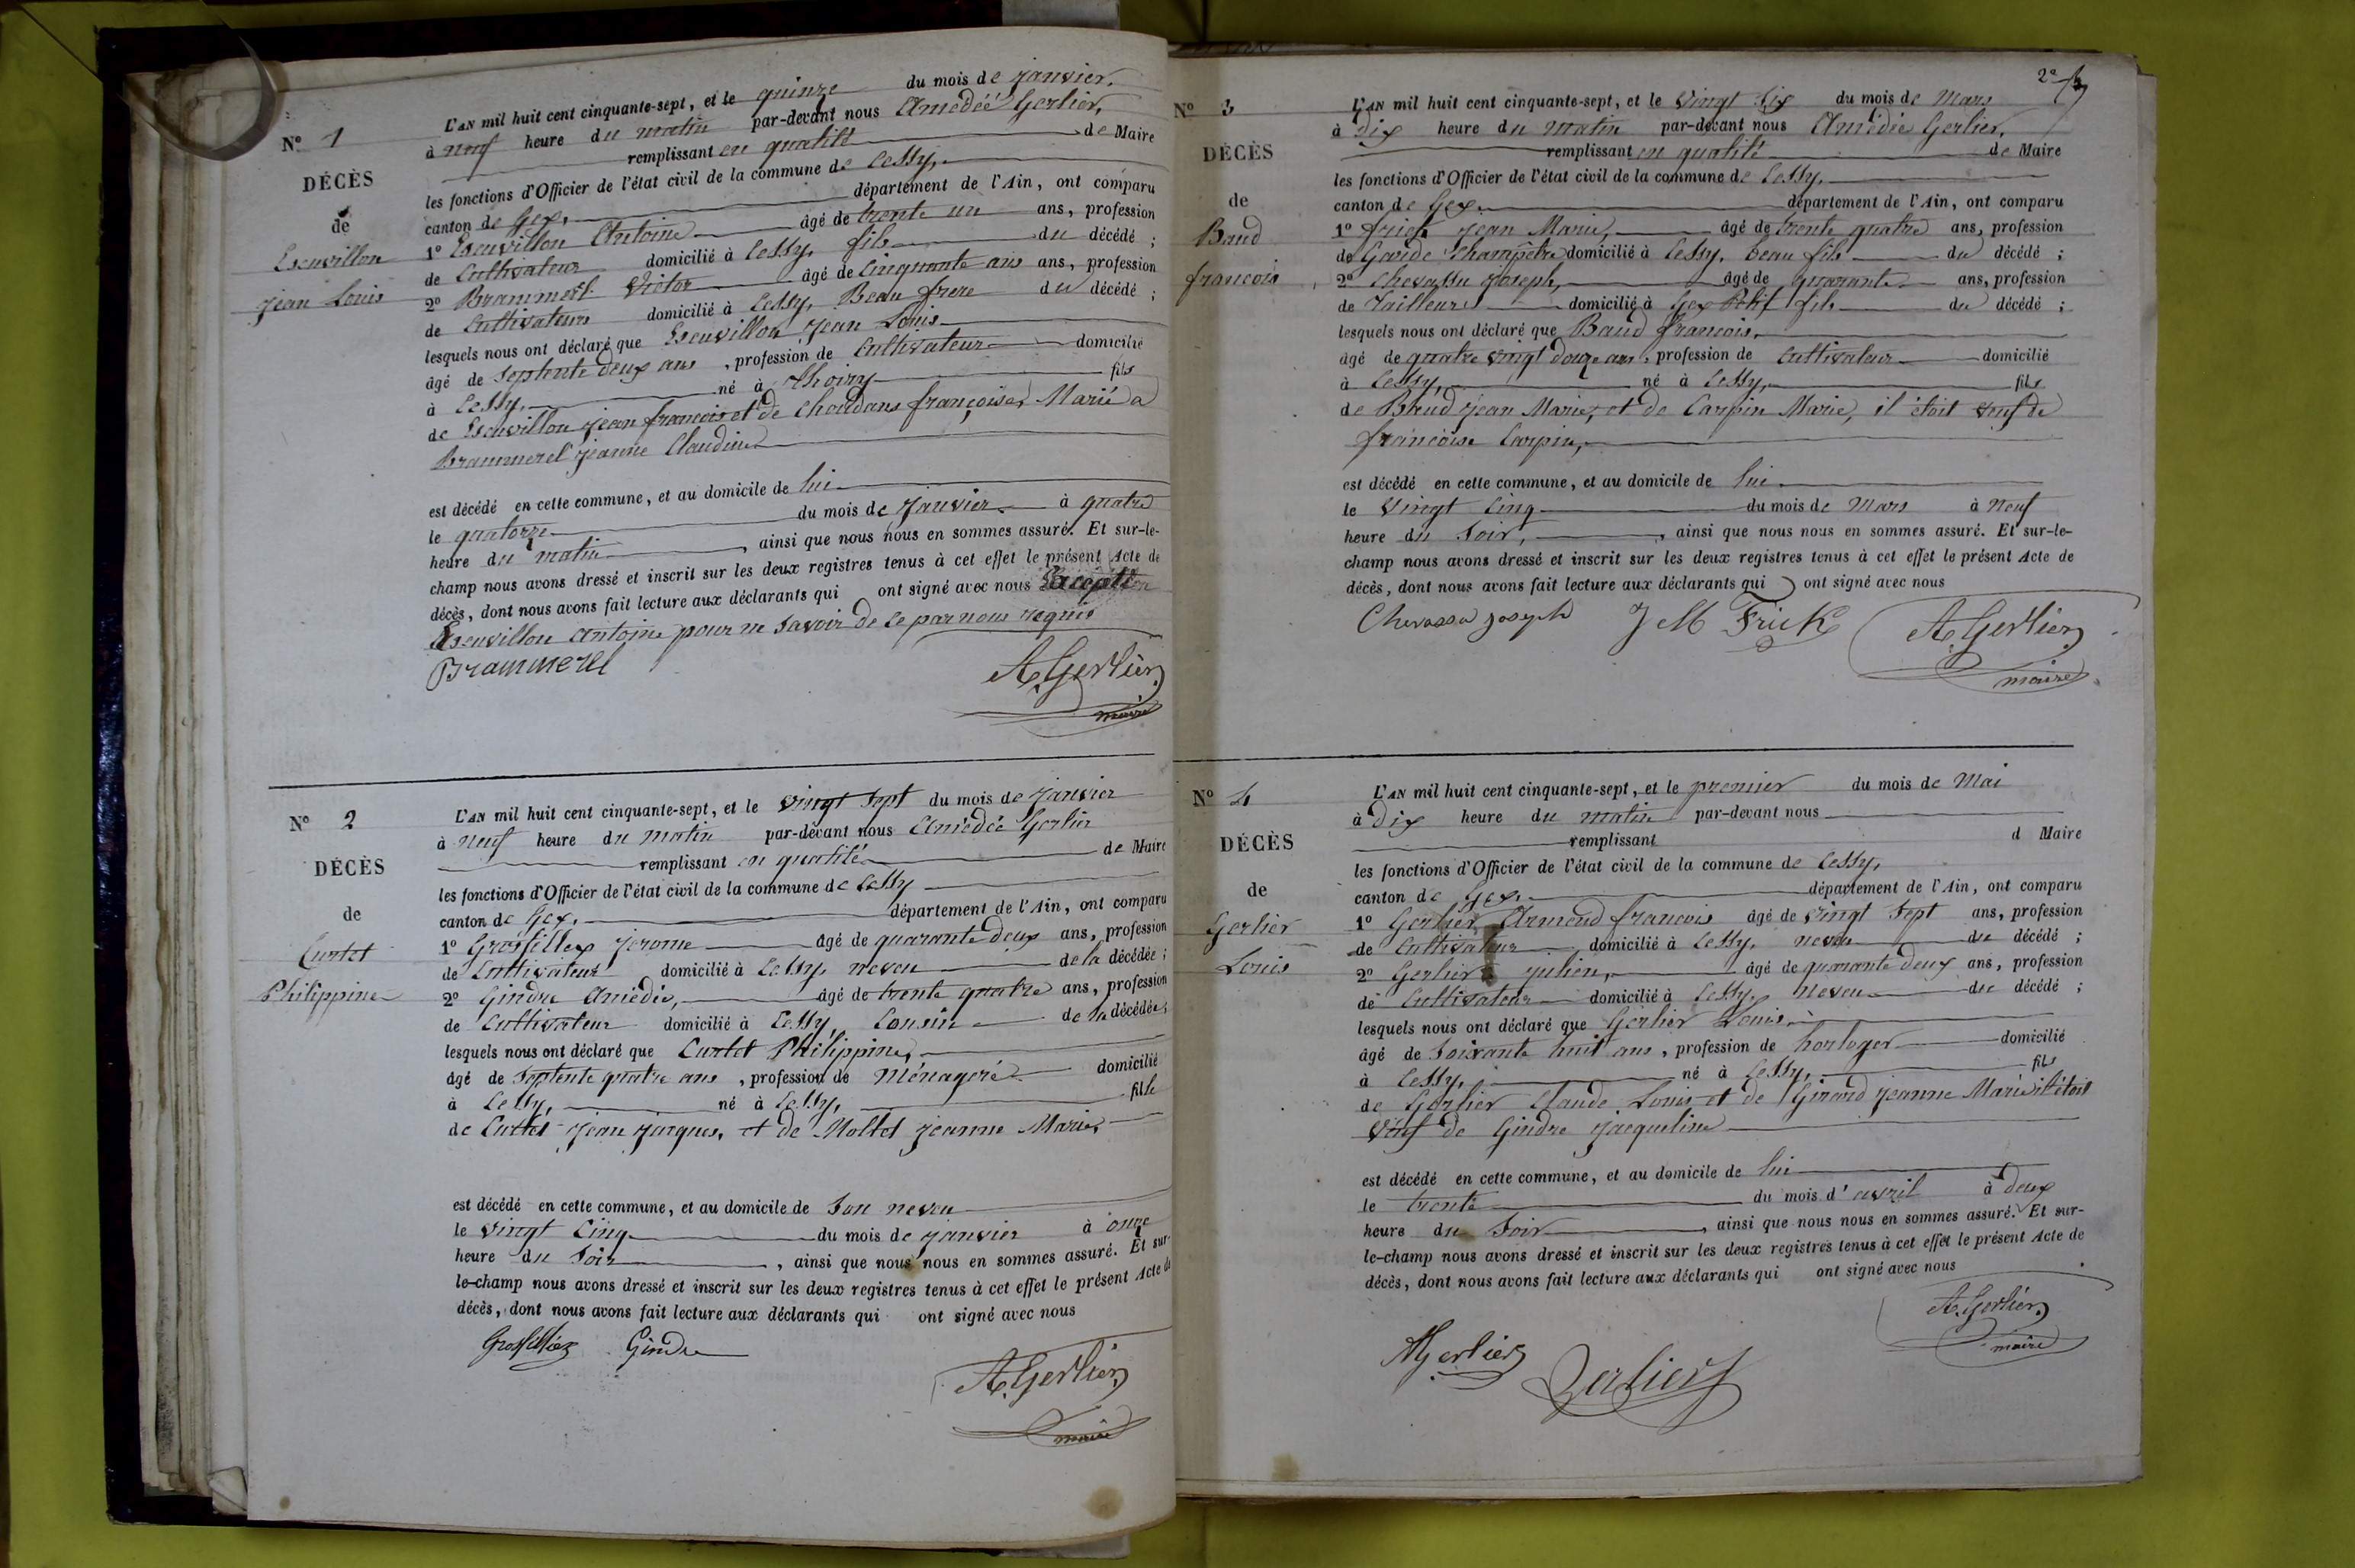 N° 1
DÉCÈS
de
Escuvillon
Jean Louis
L'AN mil huit cent cinquante-sept, et le quinze du mois de janvier,
à neuf heure du matin par-devant nous Amédéé Gerlier,
remplissant en qualité de Maire
les fonctions d'Officier de l'état civil de la commune de Cessy,
canton de Gex, département de l'Ain, ont comparu
1° Escuvillon Antoine âgé de trente un ans, profession
de Cultivateur domicilié à Cessy, fils du décédé ;
2° Brammerel Victor âgé de Cinquante ans ans, profession
de Cultivateur domicilié à Cessy, Beau frere du décédé ;
lesquels nous ont déclaré que Escuvillon Jean Louis
âgé de Septente deux ans, profession de Cultivateur domicilié
à Cessy, né à Thoiry fils
de Escuvillon Jean francois et de Choudans françoise, Marié a
Brammerel Jeanne Claudine
est décédé en cette commune, et au domicile de lui
le quatorze du mois de Janvier à quatre
heure du matin, ainsi que nous nous en sommes assuré. Et sur-le-
champ nous avons dressé et inscrit sur les deux registres tenus à cet effet le présent Acte de
décès, dont nous avons fait lecture aux déclarants qui ont signé avec nous Excepté
Escuvillon Antoine pour ne savoir de ce par nous requis
Brammerel
A. Gerlier
maire
N° 2
DÉCÈS
de
Curtet
Philippine
L'AN mil huit cent cinquante-sept, et le vingt sept du mois de Janvier
à neuf heure du matin par-devant nous Amédéé Gerlier
remplissant en qualité de Maire
les fonctions d'Officier de l'état civil de la commune de Cessy
canton de Gex, département de l'Ain, ont comparu
1° Grosfillex Jerome âgé de quarante deux ans, profession
de Cultivateur domicilié à Cessy, neveu de la décédée ;
2° Gindre Amédée, âgé de trente quatre ans, profession
de Cultivateur domicilié à Cessy, Cousin de la décédée ;
lesquels nous ont déclaré que Curtet Philippine,
âgé de Septente quatre ans, profession de Ménagere domicilié
à Cessy, né à Cessy, fille
de Curtet Jean Jacques, et de Mottet Jeanne Marie,
est décédé en cette commune, et au domicile de Son neveu
le vingt Cinq du mois de janvier à onze
heure du Soir, ainsi que nous nous en sommes assuré. Et sur-
le-champ nous avons dressé et inscrit sur les deux registres tenus à cet effet le présent Acte de
décès, dont nous avons fait lecture aux déclarants qui ont signé avec nous
Gindre
A. Gerlier
maire
2e
N° 3
DÉCÈS
de
Baud
francois
L'AN mil huit cent cinquante-sept, et le vingt Six du mois de Mars
à Dix heure du matin par-devant nous Amédée Gerlier,
remplissant en qualité de Maire
les fonctions d'Officier de l'état civil de la commune de Cessy,
canton de Gex. département de l'Ain, ont comparu
1° frick Jean Marie, âgé de trente quatre ans, profession
de Garde Champêtre domicilié à Cessy, beau fils du décédé ;
2° Chevassu Joseph, âgé de quarante ans, profession
de Tailleur domicilié à Gex Petit fils du décédé ;
lesquels nous ont déclaré que Baud francois,
âgé de quatre vingt douze ans, profession de Cultivateur domicilié
à Cessy, né à Cessy, fils
de Baud Jean Marie, et de Carpin Marie, il étoit veuf de
françoise Carpin,
est décédé en cette commune, et au domicile de lui
le vingt Cinq du mois de Mars à neuf
heure du Soir, ainsi que nous nous en sommes assuré. Et sur-le-
champ nous avons dressé et inscrit sur les deux registres tenus à cet effet le présent Acte de
décès, dont nous avons fait lecture aux déclarants qui ont signé avec nous
Chevassu Joseph J M Frick A. Gerlier
maire
N° 4
DÉCÈS
de
Gerlier
Louis
L'AN mil huit cent cinquante-sept, et le premier du mois de Mai
à Dix heure du matin par-devant nous
remplissant d Maire
les fonctions d'Officier de l'état civil de la commune de Cessy,
canton de Gex. département de l'Ain, ont comparu
1° Gerlier Armand francois âgé de vingt Sept ans, profession
de Cultivateur domicilié à Cessy, neveu du décédé ;
2° Gerlier Julien, âgé de quarante deux ans, profession
de Cultivateur domicilié à Cessy, neveu du décédé ;
lesquels nous ont déclaré que Gerlier Louis
âgé de Soixante huit ans, profession de horloger domicilié
à Cessy, né à Cessy, fils
de Gerlier Claude Louis et de Girard Jeanne Marie il étoit
Veuf de Gindre Jacqueline
est décédé en cette commune, et au domicile de lui
le trente du mois d'avril à deux
heure du Soir, ainsi que nous nous en sommes assuré. Et sur-
le-champ nous avons dressé et inscrit sur les deux registres tenus à cet effet le présent Acte de
décès, dont nous avons fait lecture aux déclarants qui ont signé avec nous
A. Gerlier
maire
Gerlier
Gerlier